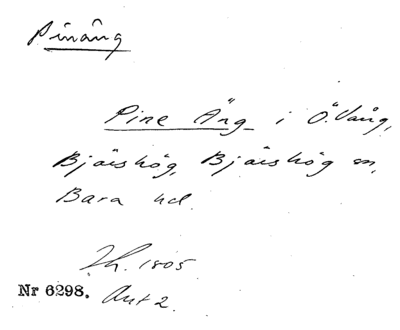 Pinäng
Pine Äng i Ö. Vång,
Bjäeshög, Bjäeshög sn,
Bara hd.
Zh. 1805
Nr 6298. Akt 2.